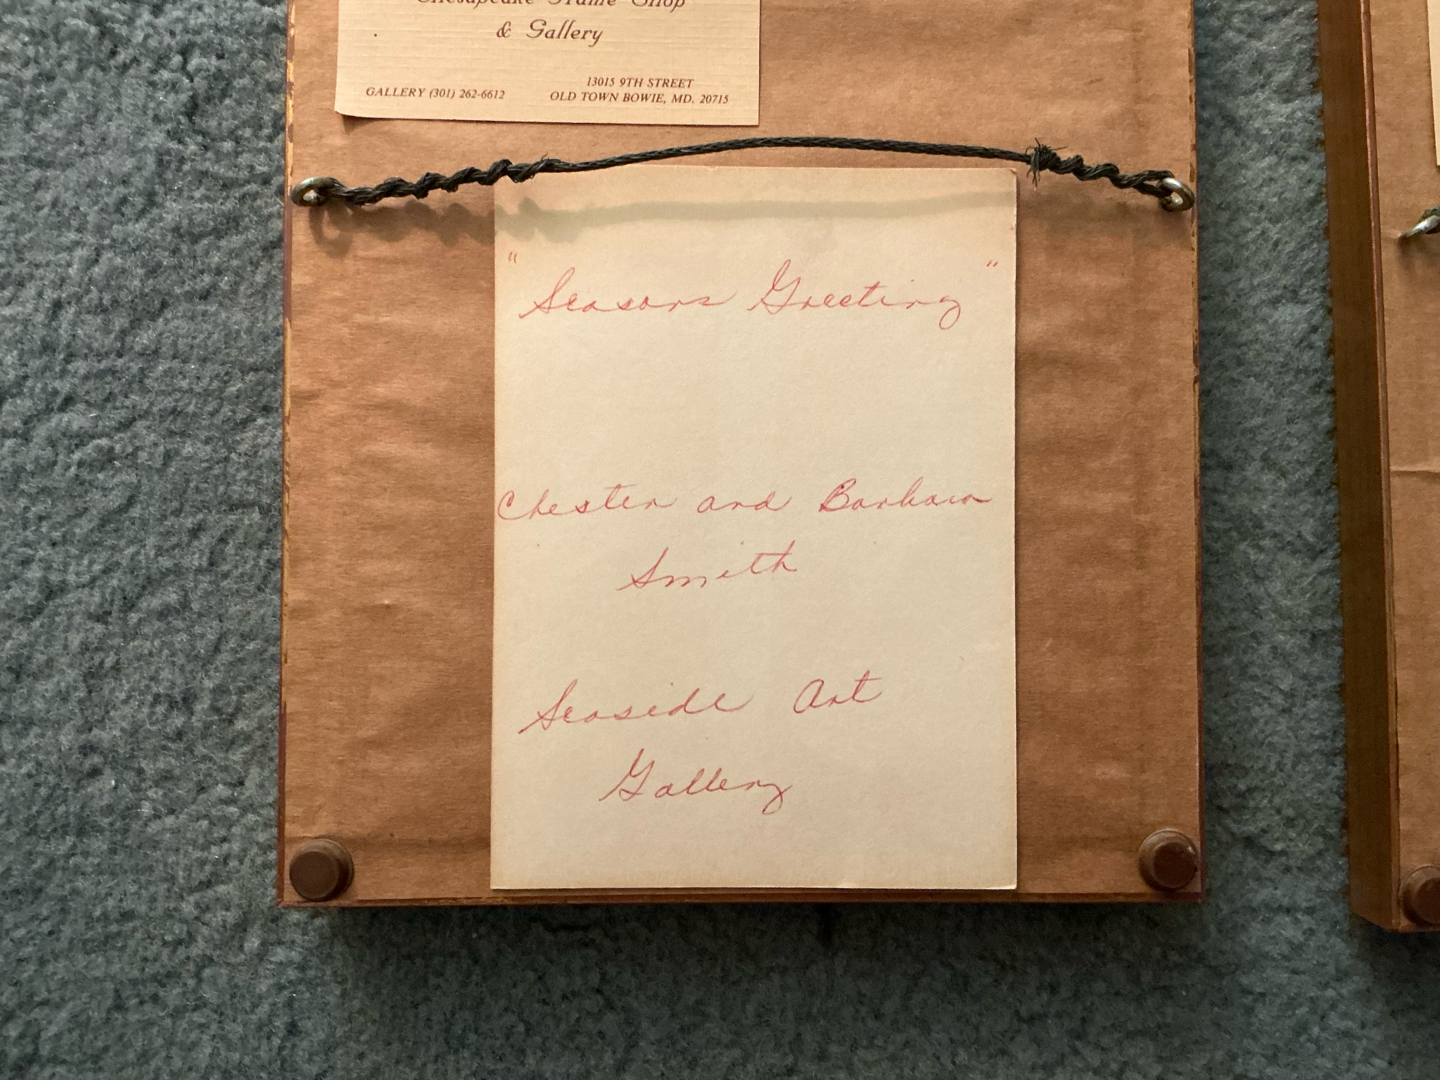 Chesapeake Frame Shop
& Gallery
GALLERY (301) 262-6612
13015 9TH STREET
OLD TOWN BOWIE, MD. 20715
"Seasons Greeting"
Chester and Barbara
Smith
Seaside Art
Gallery